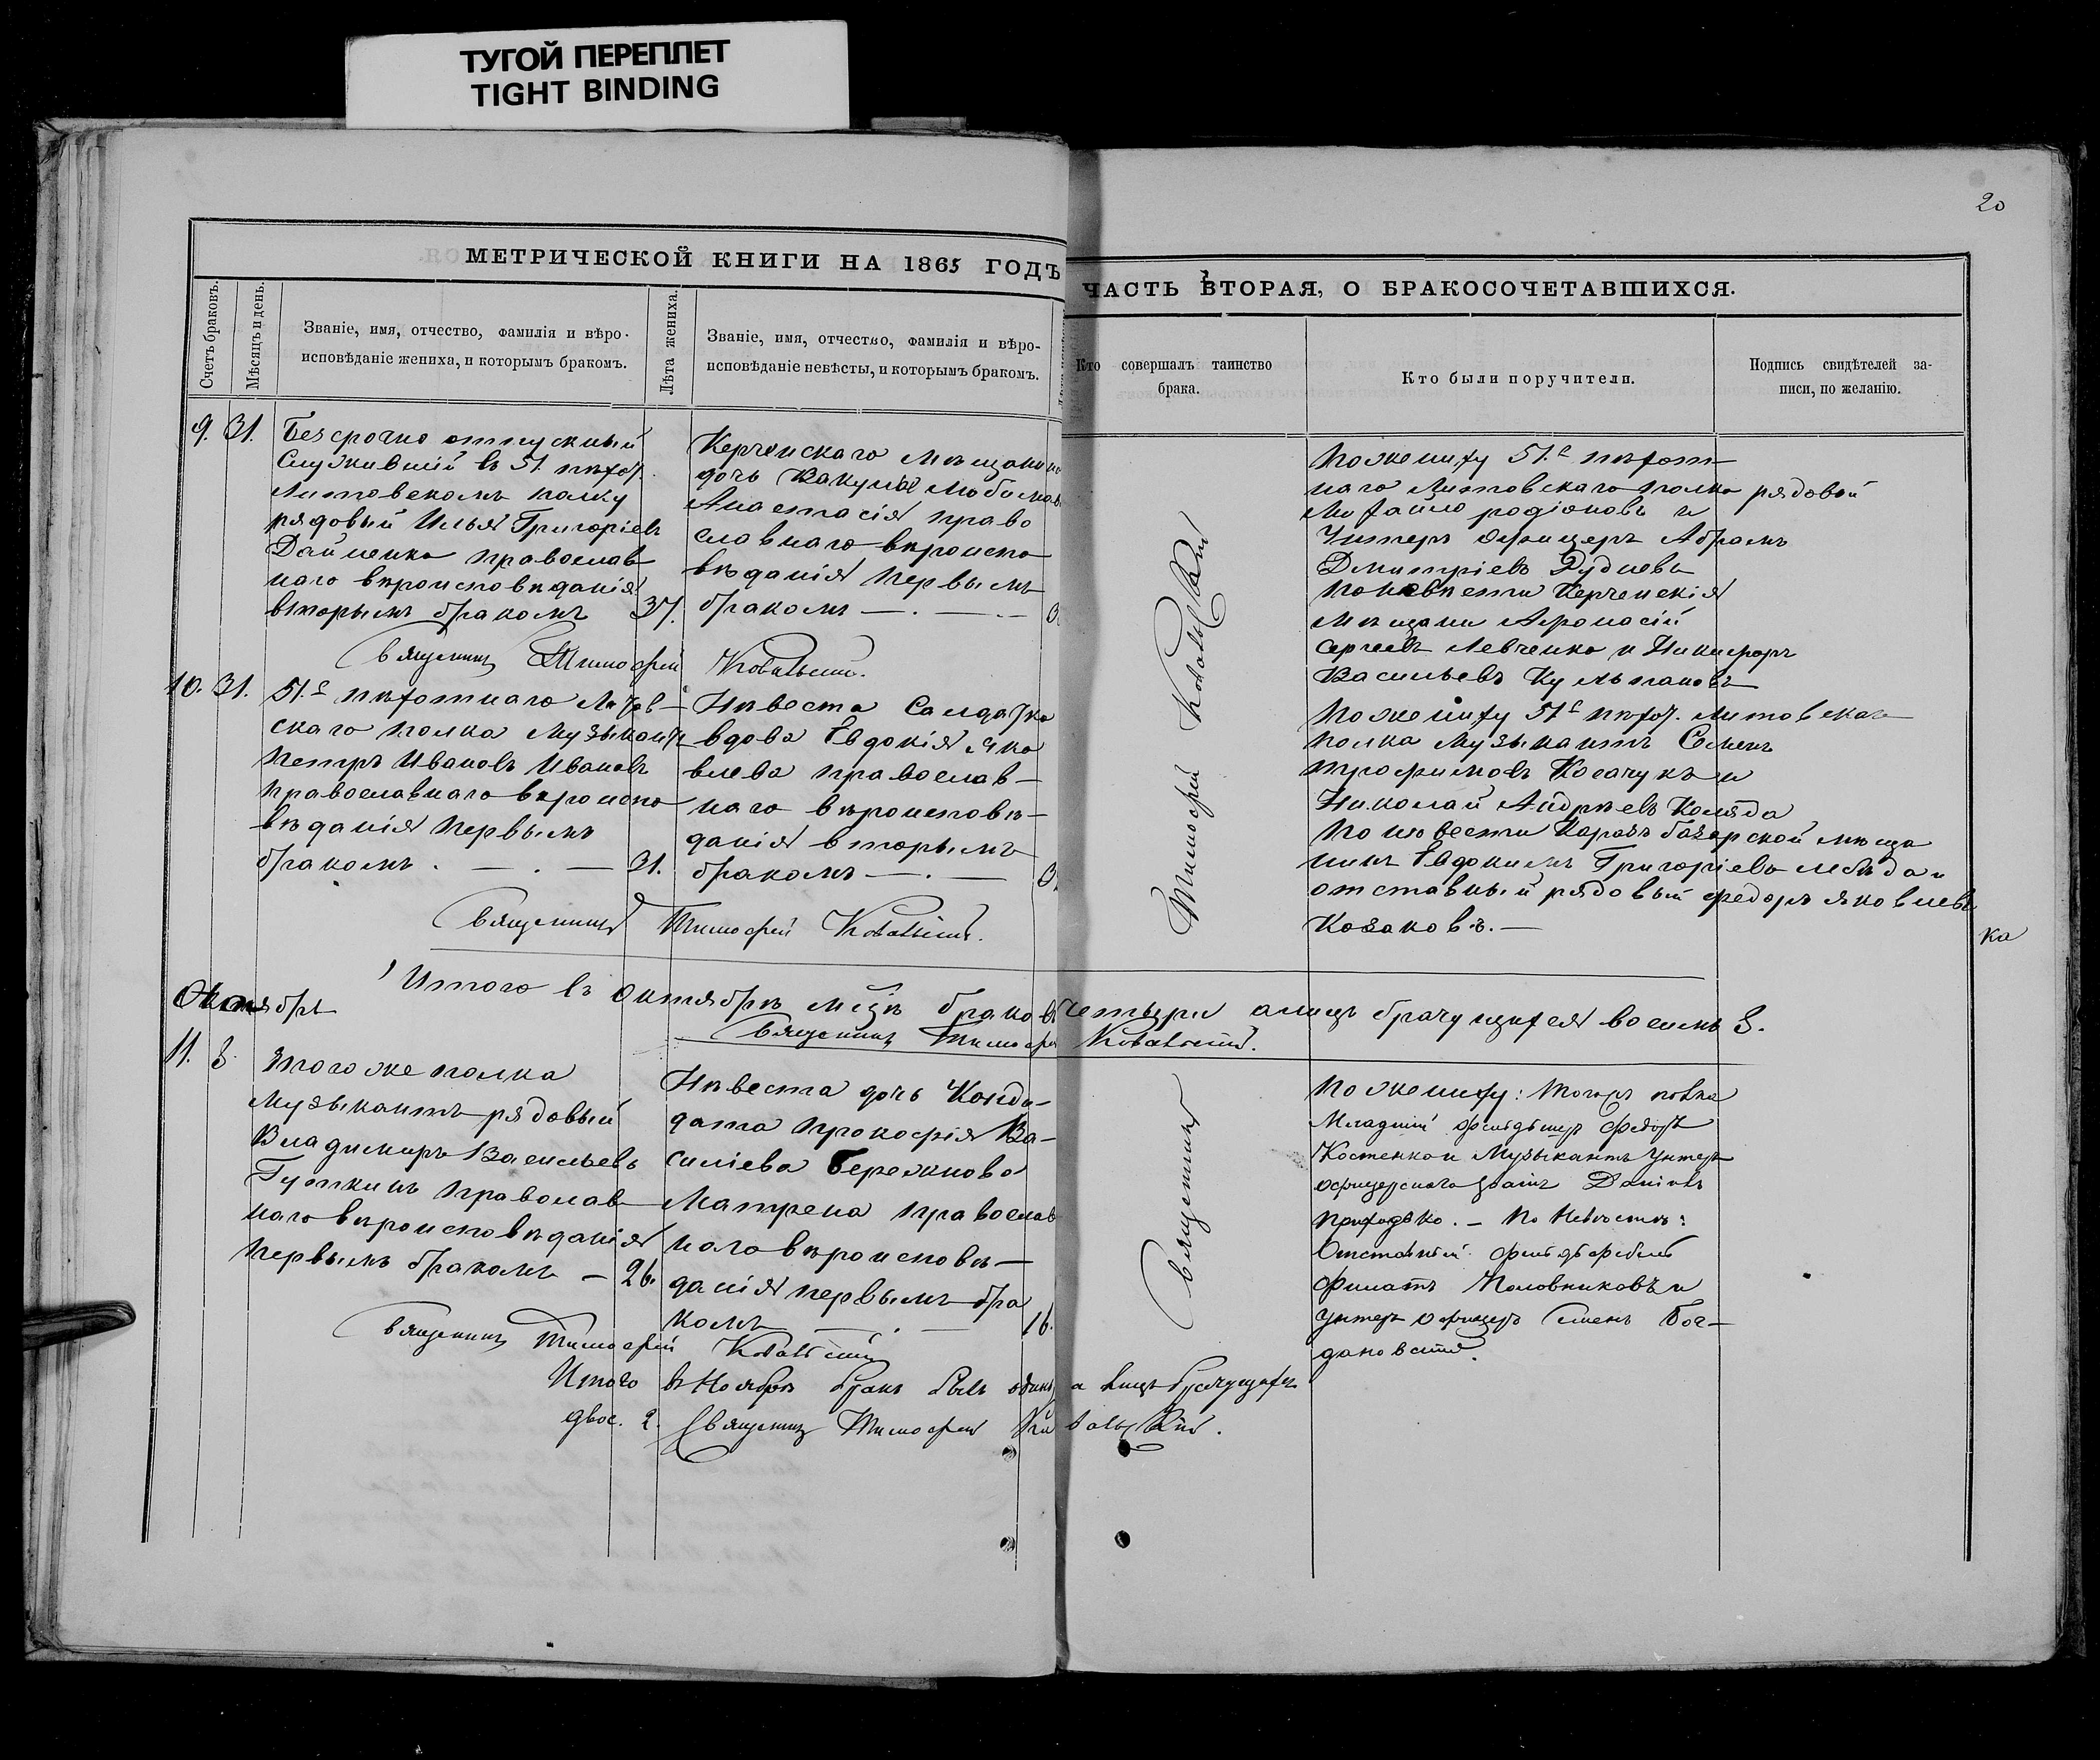 ТУГОЙ ПЕРЕПЛЕТ
TIGHT BINDING
20
МЕТРИЧЕСКОЙ КНИГИ НА 1865 ГОДЪ
ЧАСТЬ ВТОРАЯ, О БРАКОСОЧЕТАВШИХСЯ.
Счетъ браковъ.
Мѣсяцъ и день.
Званіе, имя, отчество, фамилія и вѣро-
исповѣданіе жениха, и которымъ бракомъ.
Лѣта жениха.
Званіе, имя, отчество, фамилія и вѣро-
исповѣданіе невѣсты, и которымъ бракомъ.
Кто совершалъ таинство
брака.
Кто были поручители.
Подпись свидѣтелей за-
писи, по желанію.
9. 31.
Безсрочно отпускный
Служившій въ 51. пѣхот.
Литовскомъ полку
рядовый Илья Григоріевъ
Дайненко православ
наго вѣроисповѣданія
вторымъ бракомъ 37.
Керченскаго мѣщанина
дочь
Анастасія право
славнаго вѣроиспо
вѣданія первымъ
бракомъ
Священникъ Тимофей Ковальскій.
По жениху 51.го пѣхот
наго Литовскаго полка рядовой
Михаило родіоновъ и
Унтеръ офицеръ Абрамъ
Дмитріевъ Рудневъ
по невѣсти Керченскія
Мѣщани Афонасій
Сергеевъ Левченко и Никифоръ
Васильевъ
10. 31.
51.го пѣхотнаго Литов-
скаго полка Музыкантъ
Петръ Ивановъ Ивановъ
православнаго вѣроиспо
вѣданія первымъ
бракомъ. — . — 31.
Невѣста Салдатка
вдова Евдокія яко
влева православ-
наго вѣроисповѣ-
данія вторымъ
бракомъ — . —
Священникъ Тимофей Ковальскій.
По жениху 51го пѣхот. Литовскаго
полка Музыкантъ Семенъ
трофимовъ Косачукъ и
Николай Андрѣевъ Коляда
По невести Карасъ базарской мѣща
нинъ Евдокимъ Григоріевъ и
отставный рядовый федоръ яковлевъ
Козаковъ. —
ка
Тимофей Ковальскій
Итого въ октябрѣ мцѣ браковъ четыри а лицъ брачущихся восемь 8.
Священникъ Тимофей Ковальскій.
Октябрь
11. 8
Того же полка
Музыкантъ рядовый
Владимиръ Васильевъ
Гупкинъ православ
наго вѣроисповѣданія
первымъ бракомъ — 26.
Невѣста дочь Канди-
дата прокофія Ва-
силіева Бережнова
Матрена православ
наго вѣроисповѣ-
данія первымъ бра
комъ — . — 16.
Священникъ Тимофей Ковальскій
Священникъ
По жениху: Тогожъ полка
Младшій фельдшеръ Федоръ
Костенко и Музыкантъ унтеръ
офицерскаго званія Даніилъ
Приходько. — По Невѣстѣ:
Отставный фельдфебель
Филатъ Половниковъ и
Унтеръ офицеръ Семенъ Бог-
дановскій.
Итого въ Ноябрѣ бракъ былъ одинъ, а лицъ брачущихся
двое. 2. Священникъ Тимофей Ковальскій.